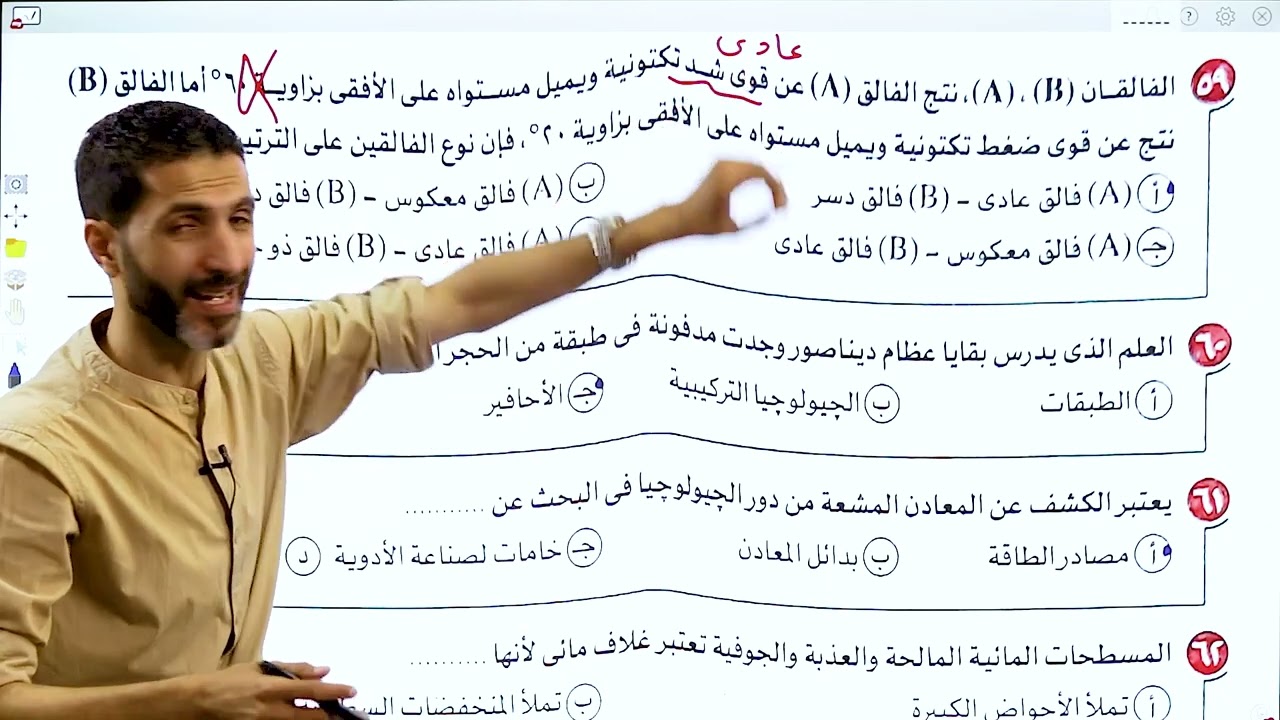 عادى
٥٩ الفالقان (B) ، (A)، نتج الفالق (A) عن قوى شد تكتونية ويميل مستواه على الأفقى بزاوية ٦٠° أما الفالق (B)
نتج عن قوى ضغط تكتونية ويميل مستواه على الأفقى بزاوية ٢٠°، فإن نوع الفالقين على
أ (A) فالق عادى – (B) فالق دسر
ب (A) فالق معكوس – (B) فالق
جـ (A) فالق معكوس – (B) فالق عادى
(A) فالق عادى – (B) فالق
٦٠ العلم الذى يدرس بقايا عظام ديناصور وجدت مدفونة فى طبقة من الحجر
أ الطبقات
ب الچيولوچيا التركيبية
جـ الأحافير
٦١ يعتبر الكشف عن المعادن المشعة من دور الچيولوچيا فى البحث عن ..........
أ مصادر الطاقة
ب بدائل المعادن
جـ خامات لصناعة الأدوية
د
٦٢ المسطحات المائية المالحة والعذبة والجوفية تعتبر غلاف مائى لأنها ..........
أ تملأ الأحواض الكبيرة
ب تملأ المنخفضات